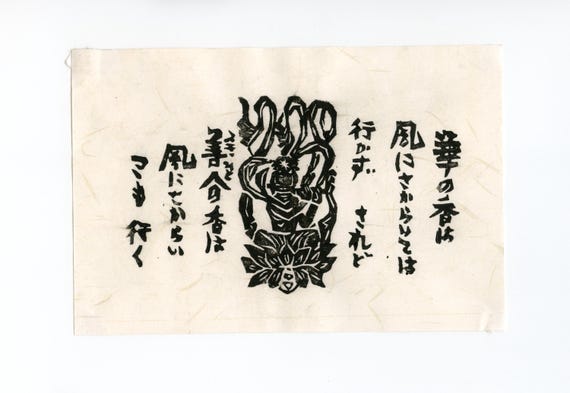 華の香は
風にさからいては
行かず されど
善人の香は
風にさからい
ても 行く